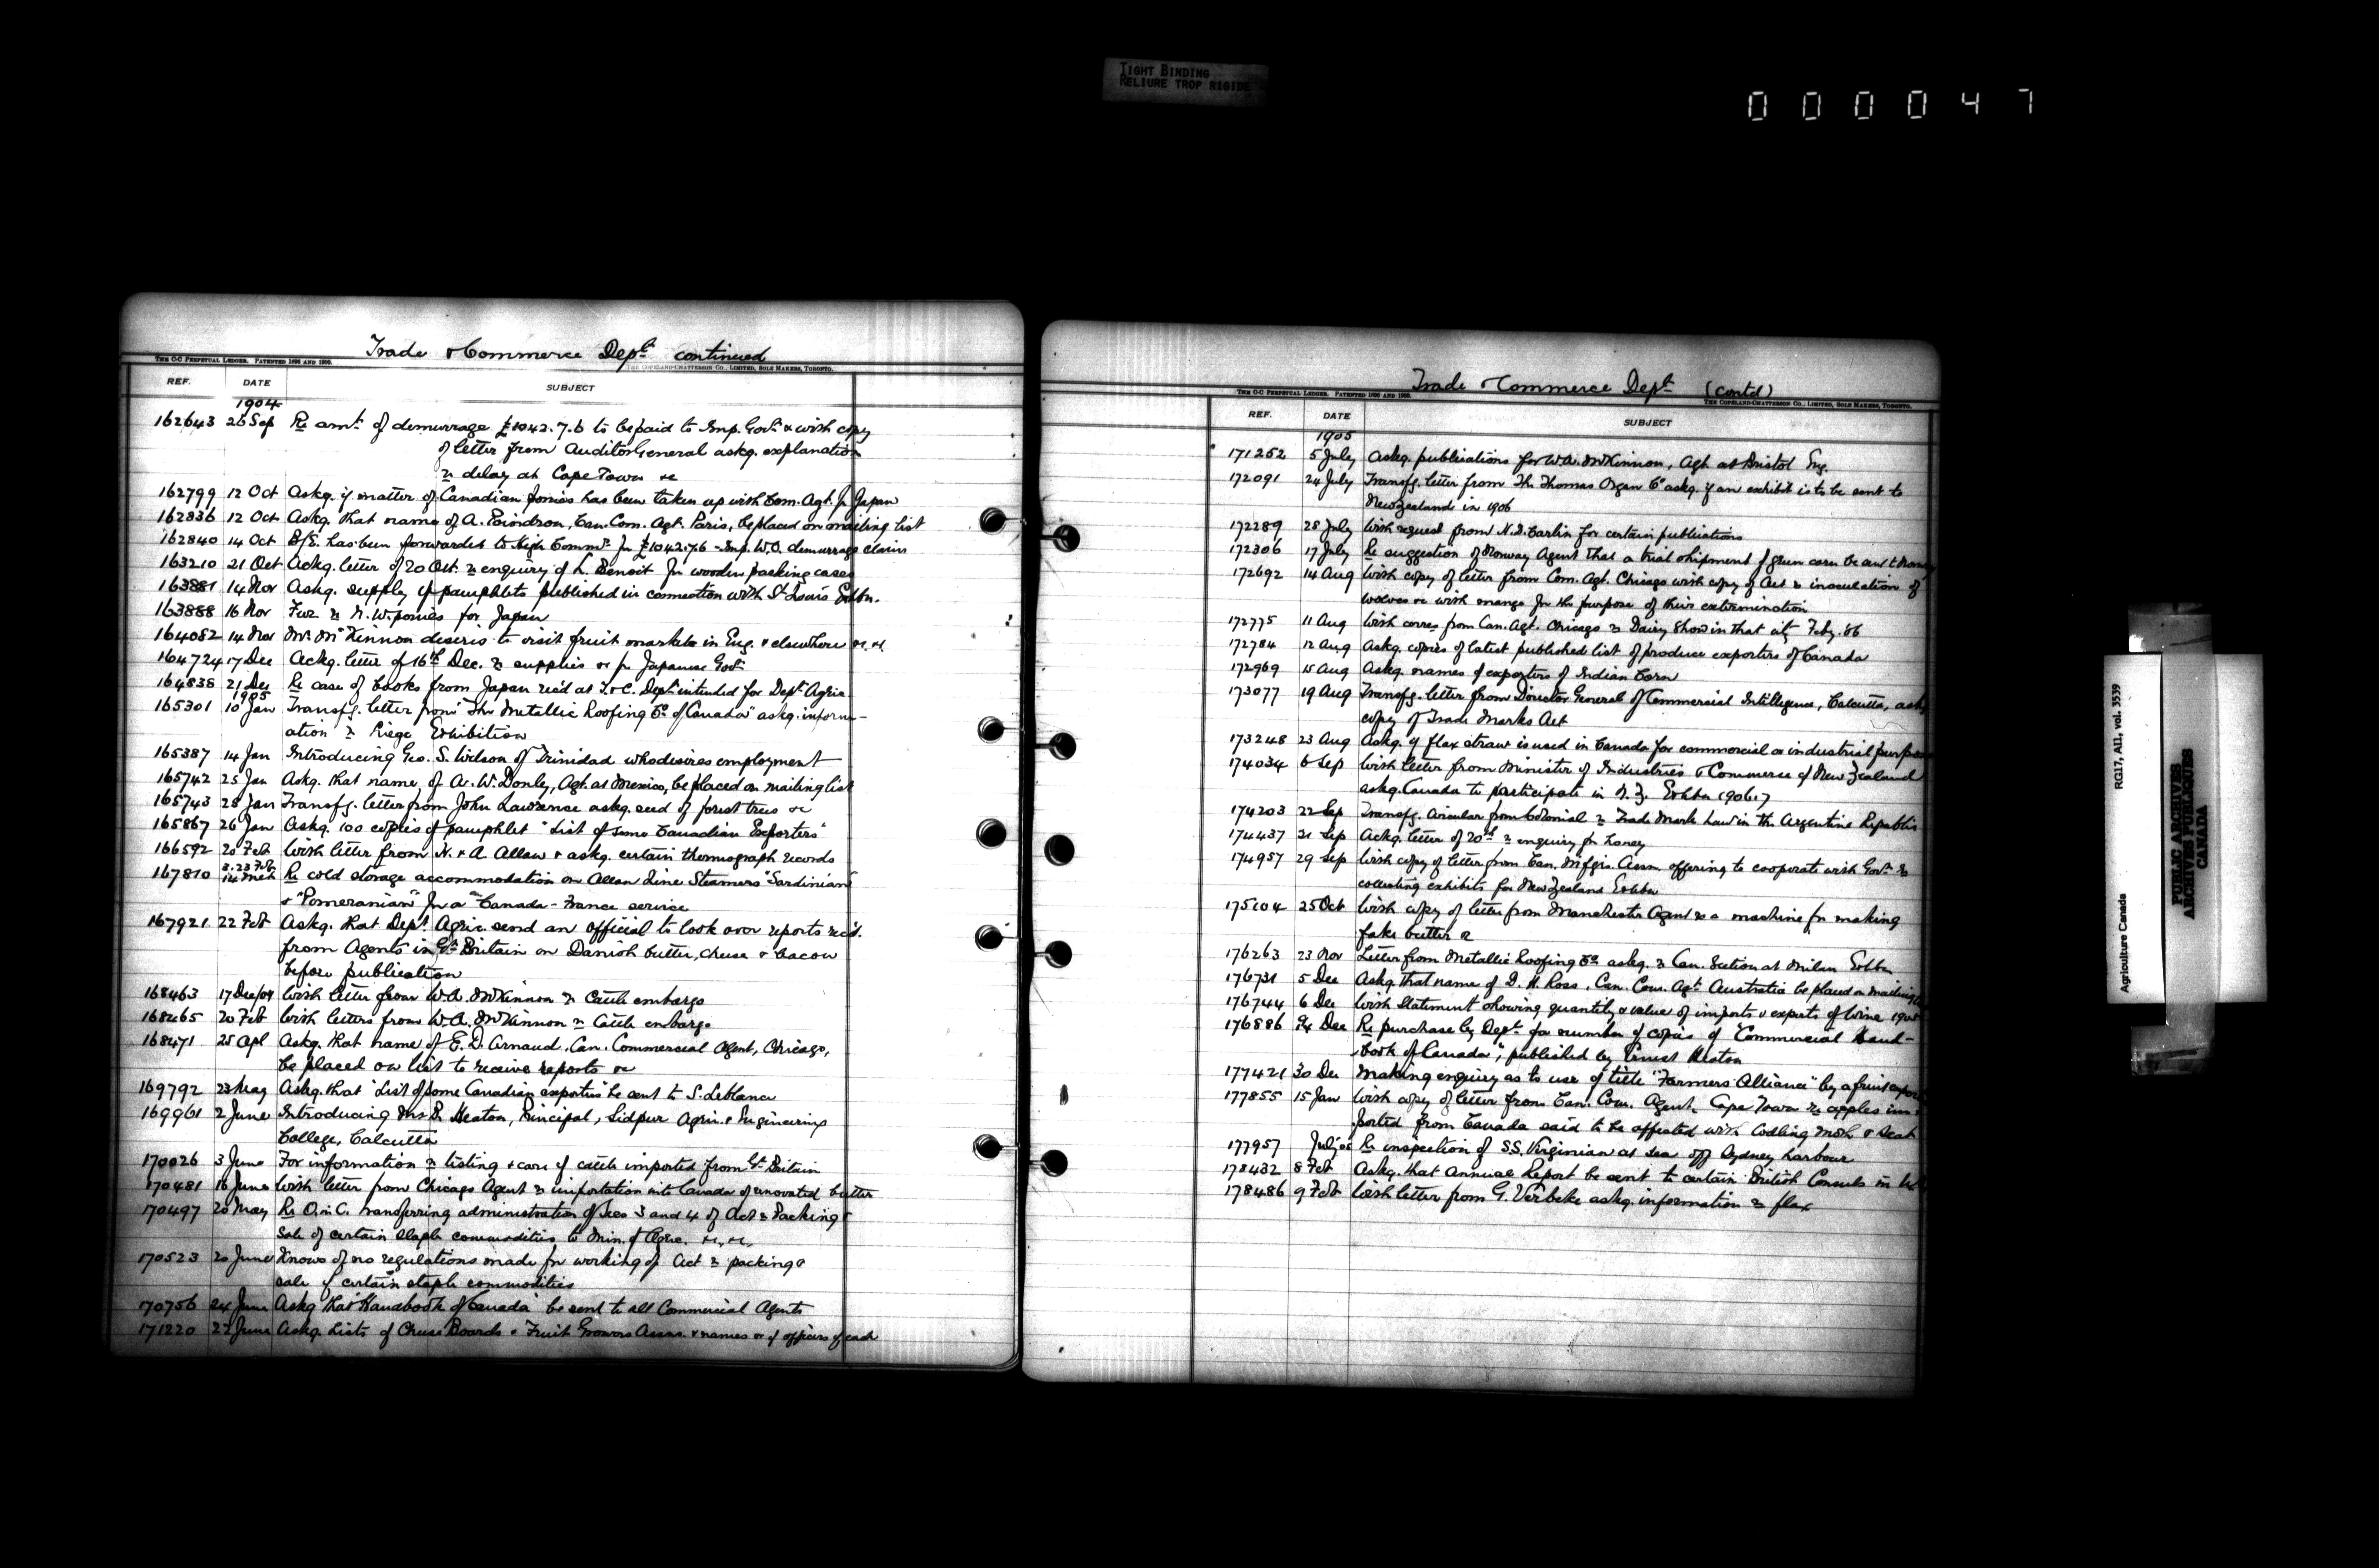 TIGHT BINDING
RELIURE TROP RIGIDE
000047
Trade & Commerce Dept. continued
THE C-C PERPETUAL LEDGER. PATENTED 1896 AND 1900.
THE COPELAND-CHATTERSON CO., LIMITED, SOLE MAKERS, TORONTO.
REF. DATE SUBJECT
1904
162643 26 Sep Re amt. of demurrage £1042.7.6 to be paid to Imp. Govt. & with copy
of letter from Auditor General askg. explanation
re delay at Cape Town &c
162799 12 Oct Askg. if matter of Canadian ponies has been taken up with Com. Agt. fr Japan
162836 12 Oct Askg. that name of A. Poindron, Can. Com. Agt. Paris, be placed on mailing list
162840 14 Oct B/E. has been forwarded to High Commr. for £1042.7.6 - Imp. W.O. demurrage claim
163210 21 Oct Ackg. letter of 20 Oct. re enquiry of L. Benoit for wooden packing cases
163881 14 Nov Askg. supply of pamphlets published in connection with St Louis Exhbn.
163888 16 Nov Fur. re N.W. ponies for Japan
164082 14 Nov Mr. McKinnon desires to visit fruit markets in Eng. & elsewhere &c. &c
164724 17 Dec Ackg. letter of 16th Dec. re supplies &c fr Japanese Govt.
164838 21 Dec Re case of books from Japan rec'd at T. & C. Dept. intended for Dept. Agric
1905
165301 10 Jan Transfg. letter from "The Metallic Roofing Co. of Canada" askg. inform-
ation re Liege Exhibition
165387 14 Jan Introducing Geo. S. Wilson of Trinidad who desires employment
165742 25 Jan Askg. that name of A. W. Donly, Agt. at Mexico, be placed on mailing list
165743 28 Jan Transfg. letter from John Lawrence askg. seed of forest trees &c
165867 26 Jan Askg. 100 copies of pamphlet "List of some Canadian Exporters"
166592 20 Feb With letter from H. & A. Allan & askg. certain thermograph records
167810 3.23 Feb 14 Mch Re cold storage accommodation on Allan Line Steamers "Sardinian"
& "Pomeranian" for a "Canada-France service
167921 22 Feb Askg. that Dept. Agric. send an official to look over reports rec'd.
from Agents in Gt. Britain on Danish butter, cheese & bacon
before publication
168463 17 Dec/04 With letter from W.A. McKinnon re Cattle embargo
168465 20 Feb With letters from W.A. McKinnon re Cattle embargo
168471 25 Apl Askg. that name of E.D. Arnaud, Can. Commercial Agent, Chicago,
be placed on list to receive reports &c
169792 23 May Askg. that "List of some Canadian exporters" be sent to S. Leblanc
169961 2 June Introducing Mr. Heaton, Principal, Sidpur Agric. & Engineering
College, Calcutta
170026 3 June For information re testing & care of cattle imported from Gt. Britain
170481 16 June With letter from Chicago Agent re importation into Canada of renovated butter
170497 20 May Re O. in C. transferring administration of Secs 3 and 4 of Act re Packing &
Sale of certain staple commodities to Min. of Agric. &c., &c.,
170523 20 June Knows of no regulations made for working of Act re packing &
sale of certain staple commodities
170756 24 June Askg. that "Handbook of Canada" be sent to all Commercial Agents
171220 22 June Askg. Lists of Cheese Boards & Fruit Growers Assns. & names &c of officers of each
Trade & Commerce Dept. (contd)
THE C-C PERPETUAL LEDGER. PATENTED 1896 AND 1900.
THE COPELAND-CHATTERSON CO., LIMITED, SOLE MAKERS, TORONTO.
REF. DATE SUBJECT
1905
171252 5 July Askg. publications for W.A. McKinnon, Agt. at Bristol Eng.
172091 24 July Transfg. letter from The Thomas Organ Co. askg. if an exhibit is to be sent to
New Zealand in 1906
172289 28 July With request from N.D. Carlin for certain publications
172306 17 July Re suggestion of Norway Agent that a trial shipment of green corn be sent to
172692 14 Aug With copy of letter from Com. Agt. Chicago with copy of Act re inoculation of
wolves &c with mange for the purpose of their extermination
172775 11 Aug With corres from Can. Agt. Chicago re Dairy Show in that city Feby. '06
172784 12 Aug Askg. copies of latest published list of produce exporters of Canada
172969 15 Aug Askg. names of exporters of Indian Corn
173077 19 Aug Transfg. letter from Director General of Commercial Intelligence, Calcutta, askg
copy of Trade Marks Act
173248 23 Aug Askg. if flax straw is used in Canada for commercial or industrial purposes
174034 6 Sep With letter from Minister of Industries & Commerce of New Zealand
askg. Canada to participate in N.Z. Exhbn 1906.7
174203 22 Sep Transfg. circular from Colonial re Trade Mark Law in the Argentine Republic
174437 21 Sep Ackg. letter of 20th re enquiry for honey
174957 29 Sep With copy of letter from Can. Mfgrs. Assn. offering to cooperate with Govt. re
collecting exhibits for New Zealand Exhbn
175104 25 Oct With copy of letter from Manchester Agent re a machine for making
fake butter
176263 23 Nov Letter from Metallic Roofing Co. askg. re Can. Section at Milan Exhbn
176731 5 Dec Askg. that name of D.H. Ross, Can. Com. Agt. Australia be placed on mailing
176744 6 Dec With Statement showing quantity & value of imports & exports of Wine
176886 Dec Re purchase by Dept. for number of copies of "Commercial Hand-
book of Canada", published by Ernest Heaton
177421 30 Dec Making enquiry as to use of title "Farmers' Alliance" by a fruit
177855 15 Jan With copy of letter from Can. Com. Agent, Cape Town re apples im-
ported from Canada said to be affected with Codling Moth &
177957 Re inspection of S.S. Virginian at Sea off Sydney harbour
178432 8 Feb Askg. that Annual Report be sent to certain British Consuls in
178486 9 Feb With letter from G. Verbeke askg. information re flax
Agriculture Canada
RG17, AII, vol. 3539
PUBLIC ARCHIVES
ARCHIVES PUBLIQUES
CANADA